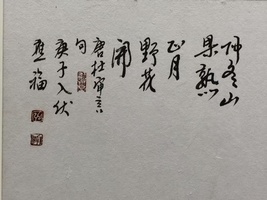 仲冬山
果熟
正月
野花
開
唐杜审言
句
庚子入伏
福